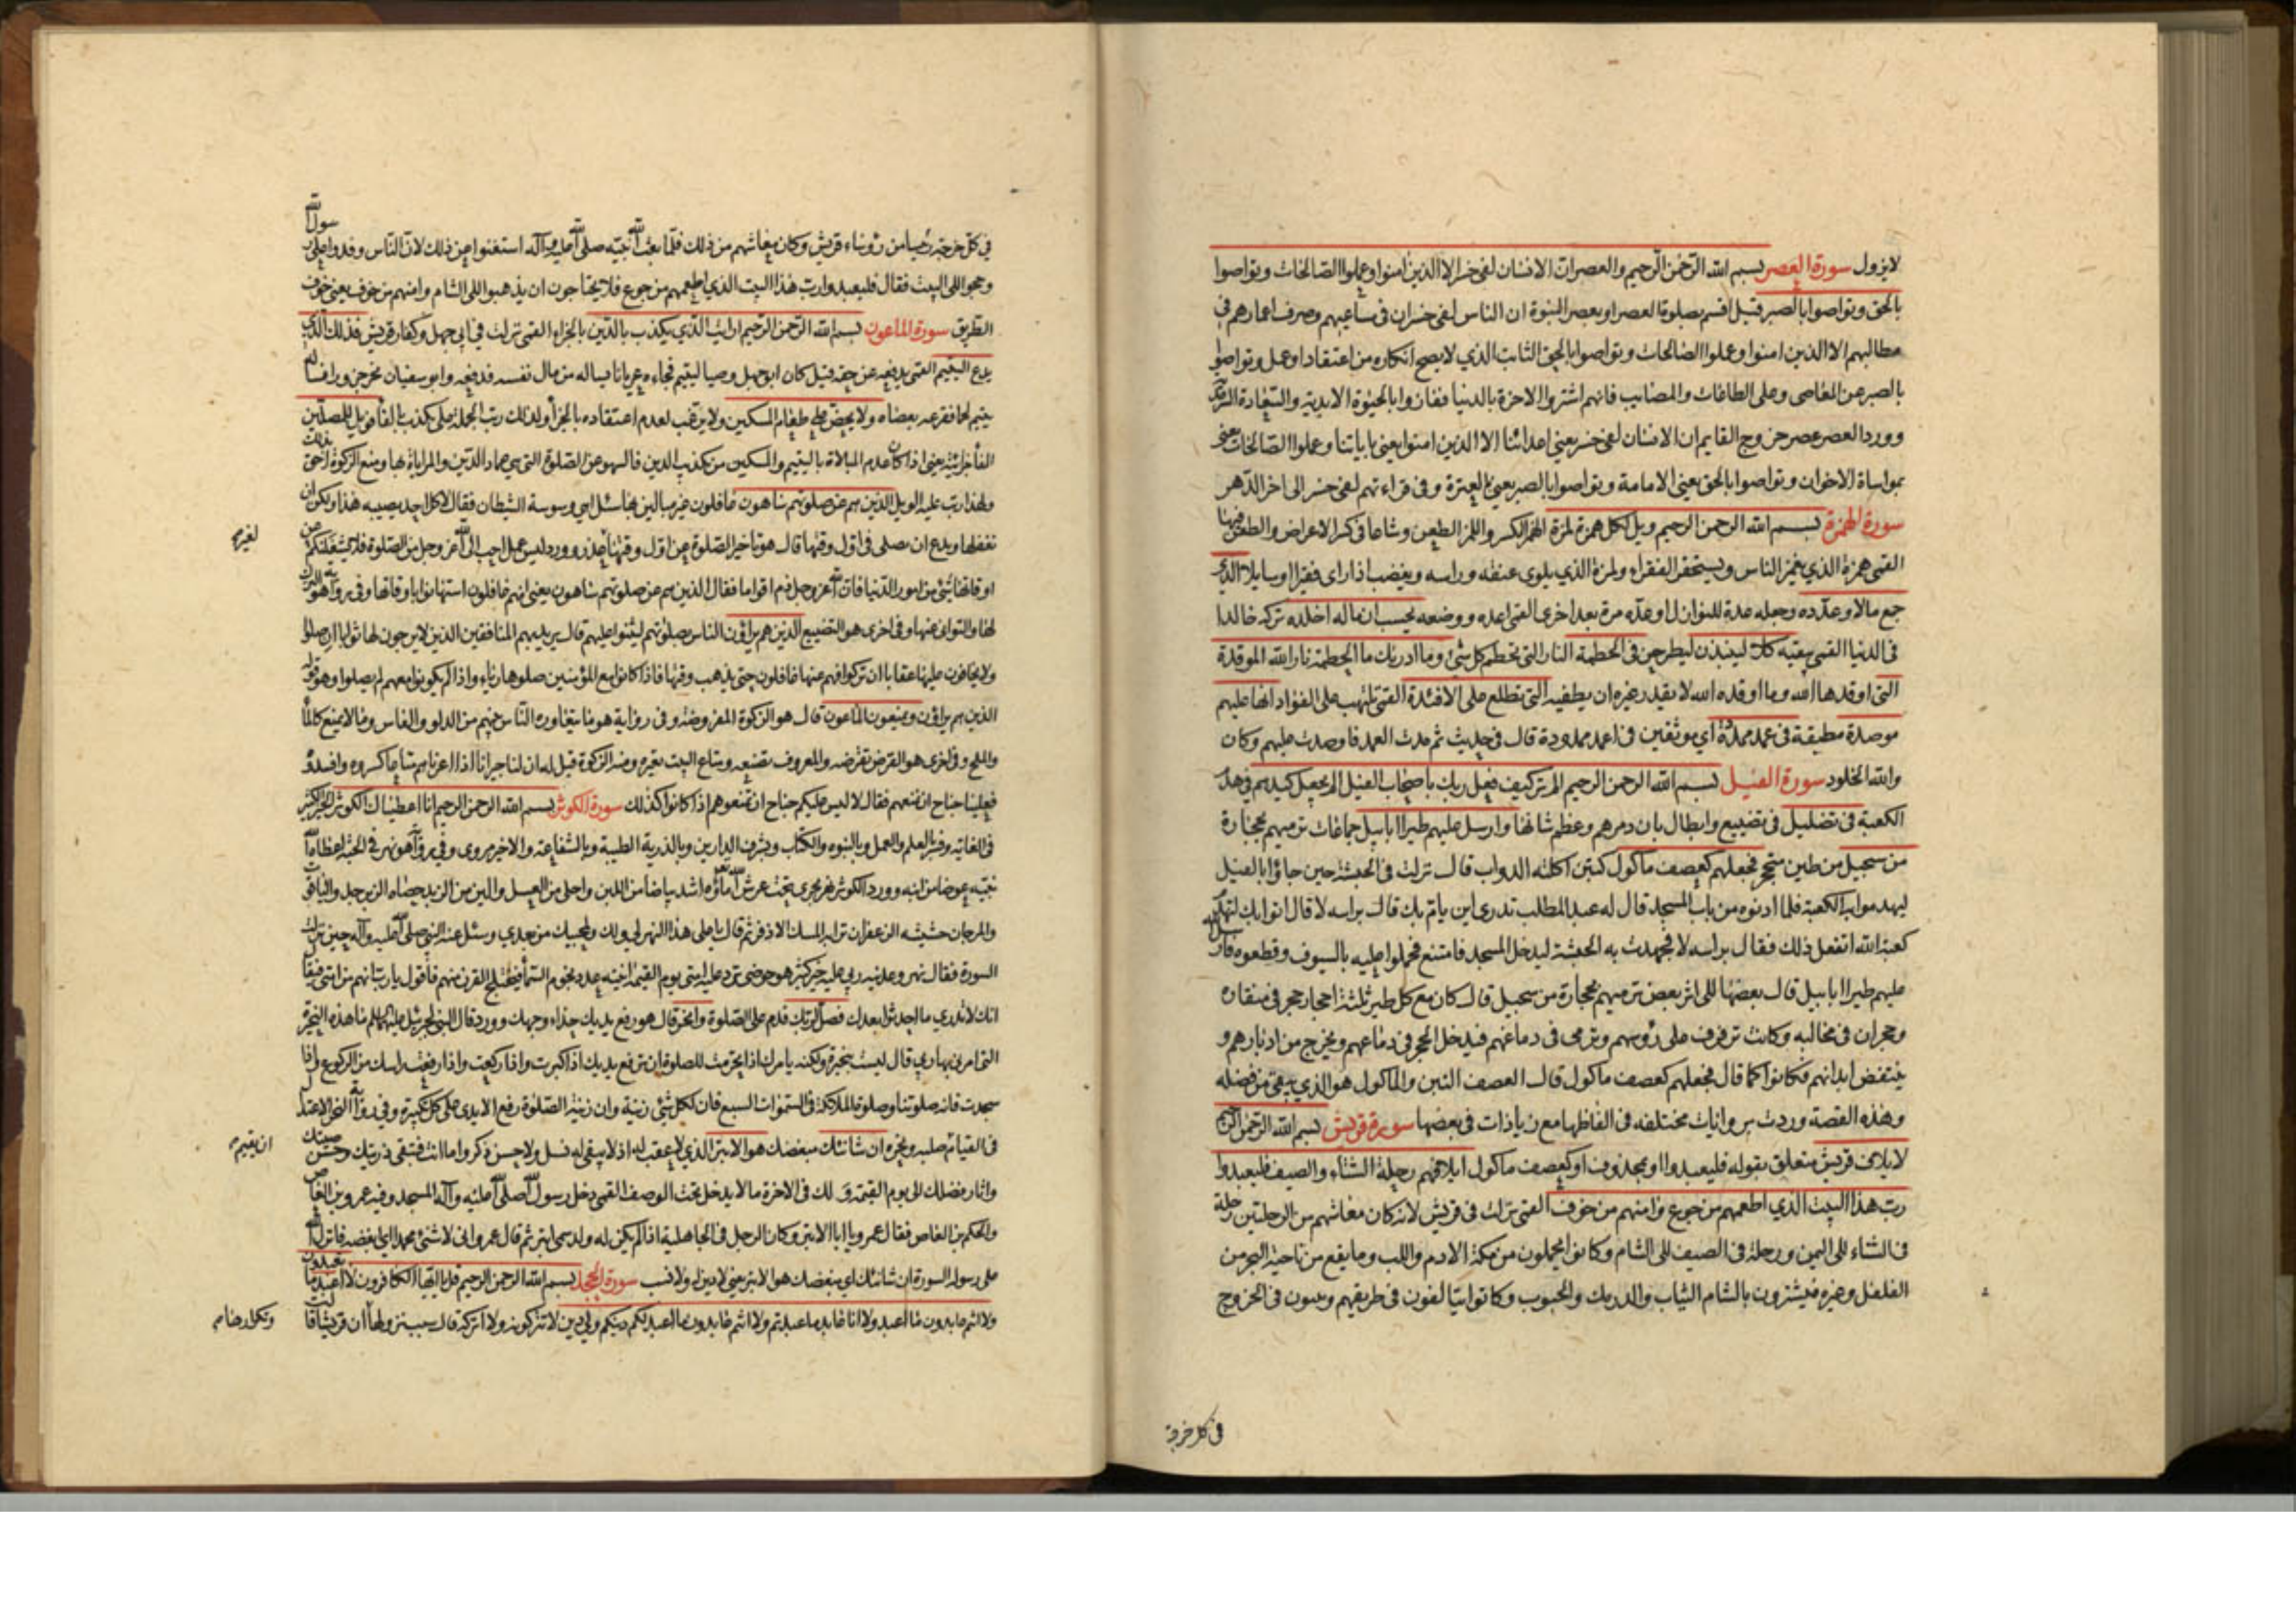 لايزول سورة العصر بسم الله الرحمن الرحيم والعصر ان الانسان لفي خسر الا الذين امنوا وعملوا الصالحات وتواصوا
بالحق وتواصوا بالصبر قيل اقسم بصلوة العصر او بعصر النبوة ان الناس لفي خسران في مساعيهم وصرف اعمارهم في
مطالبهم الا الذين امنوا وعملوا الصالحات وتواصوا بالحق الثابت الذي لا يصح انكاره من اعتقاد او عمل وتواصوا
بالصبر عن المعاصي وعلى الطاعات والمصائب فانهم اشتروا الاخرة بالدنيا ففازوا بالحيوة الابدية والسعادة السرمدية
وورد العصر عصر خروج القايم ان الانسان لفي خسر يعني اعدائنا الا الذين امنوا يعني باياتنا وعملوا الصالحات يعني
بمواساة الاخوان وتواصوا بالحق يعني الامامة وتواصوا بالصبر يعني بالعترة وفي قراءتهم لفي خسر الى اخر الدهر
سورة الهمزة بسم الله الرحمن الرحيم ويل لكل همزة لمزة الهمز الكسر واللمز الطعن وشاعا في كسر الاعراض والطعن فيها
القمي همزة الذي يغمز الناس ويستحقر الفقراء ولمزة الذي يلوي عنقه وراسه ويغضب اذا راى فقيرا او سايلا الذي
جمع مالا وعدده وجعله عدة للنوازل او عده مرة بعد اخرى القمي اعده ووضعه يحسب ان ماله اخلده تركه خالدا
في الدنيا القمي يبقيه كلا لينبذن ليطرحن في الحطمة النار التي تحطم كل شئ وما ادريك ما الحطمة نار الله الموقدة
التي اوقدها الله وما اوقده الله لا يقدر غيره ان يطفيه التي تطلع على الافئدة القمي تلتهب على الفؤاد انها عليهم
موصدة مطبقة في عمد ممددة اي موثقين في اعمدة ممدودة قال في حديث ثم مدت العمد فاوصدت عليهم وكان
والله الخلود سورة الفيل بسم الله الرحمن الرحيم الم تر كيف فعل ربك باصحاب الفيل الم يجعل كيدهم في هدم
الكعبة في تضليل في تضييع وابطال بان دمرهم وعظم شانها وارسل عليهم طيرا ابابيل جماعات ترميهم بحجارة
من سجيل من طين متحجر فجعلهم كعصف ماكول كتبن اكلته الدواب قال نزلت في الحبشة حين جاؤا بالفيل
ليهدموا به الكعبة فلما ادنوه من باب المسجد قال له عبد المطلب تدري اين يام بك قال براسه لا قال اتوا بك لتهدم
كعبة الله اتفعل ذلك فقال براسه لا فجهدت به الحبشة ليدخل المسجد فامتنع فحملوا عليه بالسيوف وقطعوه فارسل الله
عليهم طيرا ابابيل قال بعضها الى اثر بعض ترميهم بحجارة من سجيل قال كان مع كل طير ثلثة احجار حجر في منقاره
وحجران في مخالبه وكانت ترفرف على رؤسهم وترمي في دماغهم فيدخل الحجر في دماغهم ويخرج من ادبارهم و
ينتقض ابدانهم فكانوا كما قال فجعلهم كعصف ماكول قال العصف التبن والماكول هو الذي يبقى من فضله
وهذه القصة وردت بروايات مختلفه في الفاظها مع زيادات في بعضها سورة قريش بسم الله الرحمن الرحيم
لايلاف قريش متعلق بقوله فليعبدوا او بمحذوف او كعصف ماكول ايلافهم رحلة الشتاء والصيف فليعبدوا
رب هذا البيت الذي اطعمهم من جوع وامنهم من خوف القمي نزلت في قريش لانه كان معاشهم من الرحلتين رحلة
في الشتاء الى اليمن ورحلة في الصيف الى الشام وكانوا يحملون من مكة الادم واللب وما يقع من ناحية البحر من
الفلفل وغيره فيشترون بالشام الثياب والدرمك والحبوب وكانوا يتالفون في طريقهم ويثبتون في الخروج
في كل خرجة
في كل خرجة رئيسا من رؤساء قريش وكان معاشهم من ذلك فلما بعث الله نبيه صلى الله عليه وآله استغنوا عن ذلك لان الناس وفدوا على رسول الله
وحجوا الى البيت فقال فليعبدوا رب هذا البيت الذي اطعمهم من جوع فلا يحتاجون ان يذهبوا الى الشام وامنهم من خوف يعني خوف
الطريق سورة الماعون بسم الله الرحمن الرحيم ارايت الذي يكذب بالدين بالجزاء القمي نزلت في ابي جهل وكفار قريش فذلك الذي
يدع اليتيم القمي يدفعه عن حقه قيل كان ابو جهل وصيا ليتيم فجاءه عريانا يساله من مال نفسه فدفعه وابو سفيان نحر جزورا فساله
يتيم لحما فقرعه بعصاه ولا يحض على طعام المسكين ولا يرغب لعدم اعتقاده بالجزاء ولذلك رتب الجملة على يكذب بالفاء فويل للمصلين
الفاء جزائية يعني اذا كان عدم المبالاة باليتيم والمسكين من تكذيب الدين فالسهو عن الصلوة التي هي عماد الدين والمراياة بها ومنع الزكوة احق بذلك
ولهذا رتب عليه الويل الذين هم عن صلوتهم ساهون غافلون غير مبالين بها سئل اهي وسوسة الشيطان فقال لا كل احد يصيبه هذا ولكن ان
يغفلها ويدع ان يصلي في اول وقتها قال هو تاخير الصلوة عن اول وقتها لغير عذر وورد ليس عمل احب الى الله عز وجل من الصلوة فلا يشغلنكم عن
لغيره
اوقاتها شئ من امور الدنيا فان الله عز وجل ذم اقواما فقال الذين هم عن صلوتهم ساهون يعني انهم غافلون استهانوا باوقاتها وفي رواية هو الترك
لها والتواني عنها وفي اخرى هو التضييع الذين هم يراؤن الناس بصلوتهم ليثنوا عليهم قال يريد بهم المنافقين الذين لا يرجون لها ثوابا ان صلوا
ولا يخافون عليها عقابا ان تركوا فهم عنها غافلون حتى يذهب وقتها فاذا كانوا مع المؤمنين صلوها رياء واذا لم يكونوا معهم لم يصلوا وهو قوله
الذين هم يراؤن ويمنعون الماعون قال هو الزكوة المفروضة وفي رواية هو ما يتعاوره الناس بينهم من الدلو والفاس وما لا يمنع كالماء
والملح وفي اخرى هو القرض تقرضه والمعروف تصنعه ومتاع البيت تعيره ومنه الزكوة قيل له ان لنا جيرانا اذا اعرناهم متاعا كسروه وافسدوه
فعلينا جناح ان نمنعهم فقال لا ليس عليكم جناح ان تمنعوهم اذا كانوا كذلك سورة الكوثر بسم الله الرحمن الرحيم انا اعطيناك الكوثر الخير الكثير
السورة فقال نهر وعدنيه ربي عليه خير كثير هو حوضي ترد عليه امتي يوم القيمة انيته عدد نجوم السماء فيختلج القرن منهم فاقول يا رب انهم من امتي فيقال
انك لا تدري ما احدثوا بعدك فصل لربك فدم على الصلوة وانحر قال هو رفع يديك حذاء وجهك
التي امرني بها ربي قال ليست بنحيرة ولكنه يامرك اذا تحرمت للصلوة ان ترفع يديك اذا كبرت واذا ركعت واذا رفعت راسك من الركوع واذا
سجدت فانه صلوتنا وصلوة الملائكة في السموات السبع فان لكل شئ زينة وان زينة الصلوة رفع الايدي على كل تكبيرة وفي رواية النحر الاعتدال
في القيام ان يقيم صلبه ونحره ان شانئك مبغضك هو الابتر الذي لا عقب له اذ لا يبقى له نسل ولا حسن ذكر واما انت فتبقى ذريتك وحسن صيتك
ان يقيم
واثار فضلك الى يوم القيمة ولك في الاخرة ما لا يدخل تحت الوصف القمي دخل رسول الله صلى الله عليه وآله المسجد وفيه عمرو بن العاص
والحكم بن العاص فقال عمرو يا ابا الابتر وكان الرجل في الجاهلية اذا لم يكن له ولد سمي ابتر ثم قال عمرو اني لاشنئ محمدا اي ابغضه فانزل الله
على رسوله السورة ان شانئك اي مبغضك هو الابتر يعني لا دين له ولا نسب سورة الجحد بسم الله الرحمن الرحيم قل يا ايها الكافرون لا اعبد ما تعبدون
ولا انتم عابدون ما اعبد ولا انا عابد ما عبدتم ولا انتم عابدون ما اعبد لكم دينكم ولي دين لا تتركونه ولا اتركه قال سبب نزولها ان قريشا قالت